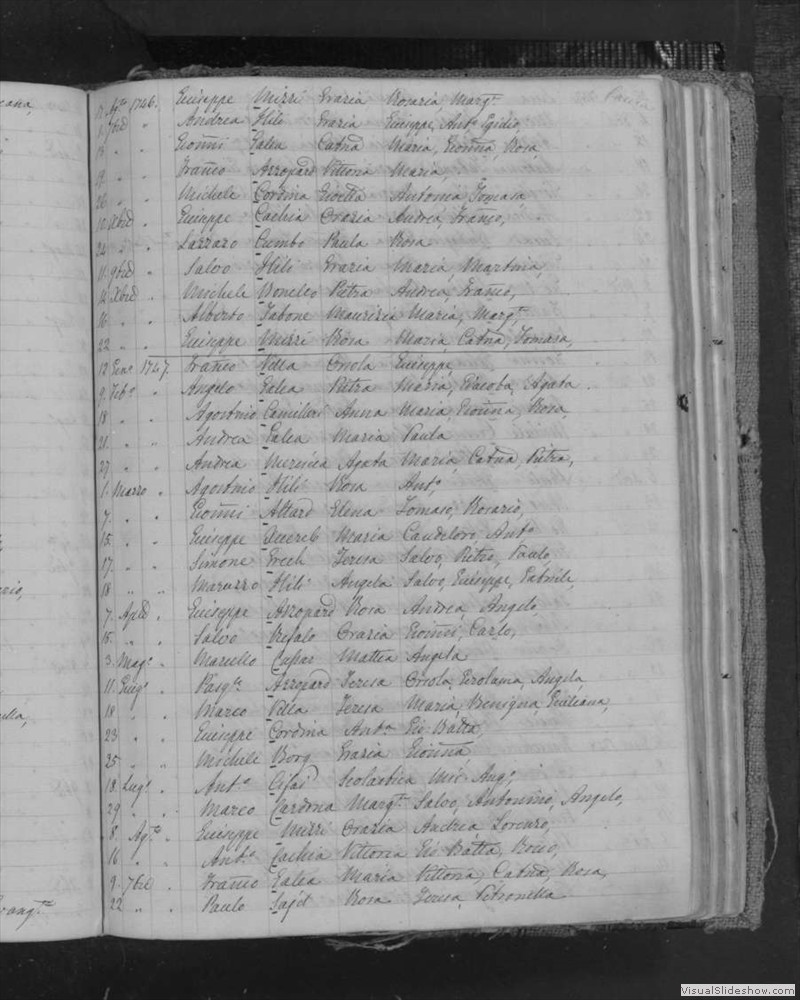 eana,
17 Agto 1746. Giuseppe Mizzi Grazia Rosaria, Margta
1. 7bre " Andrea Hili Grazia Giuseppe, Anto Egidio,
13 " " Gionni Galea Catna Maria, Gionna, Rosa,
19 " " Franco Azzopard Vittoria Maria,
26 " " Michele Cordina Gioetta Antonia, Tomasa
10 8bre " Giuseppe Cachia Orazia Andrea, Franco,
24 " " Lazzaro Cumbo Paula Rosa
11 9bre " Salvo Hili Grazia Maria, Martina,
14 Xbre " Michele Bonello Pietra Andrea, Franco,
16 " " Alberto Tabone Maurizia Maria, Margta
22 " " Giuseppe Mizzi Rosa Maria, Catna, Tomasa,
12 Geno 1747. Franco Vella Orsola Giuseppe,
9. Febo " Angelo Galea Pietra Maria, Giacoba, Agata.
18 " " Agostino Camilleri Anna Maria, Gionna, Rosa,
21. " " Andrea Galea Maria Paula
27 " " Andrea Agata Maria, Catna, Pietra,
1. Marzo " Agostino Hili Rosa Anto,
7. " " Gionni Attard Elena Tomaso, Rosario,
15. " " Giuseppe Maria Candeloro, Anto
17. " " Simone Grech Teresa Salvo, Pietro, Paulo,
18 " " Maruzzo Hili Angela Salvo, Giuseppe, Gabriele,
7. Aple . Giuseppe Azzopard Rosa Andrea, Angelo
15. " " Salvo Grazia Gionni, Carlo,
3. Mago . Marcello Caspar Mattea Angela
11. Giugo . Pasqle Azzopard Teresa Orsola, Gerolama, Angela,
18 " . Marco Vella Teresa Maria, Benigna, Giuliana,
23 " . Giuseppe Cordina Anta Gio Batta,
25 " " Michele Borg Grazia Gionna
18. Lugo . Anto Scolastica Aug,
29 " . Marco Cardona Margta Salvo, Antonino, Angelo,
8. Agto . Giuseppe Mizzi Orazia Andrea Lorenzo,
16 " . Anto Cachia Vittoria Gio Batta,
9. 7bre . Franco Galea Maria Vittoria, Catna, Rosa,
22 " . Paulo Sajd Rosa Teresa, Petronella
VisualSlideshow.com